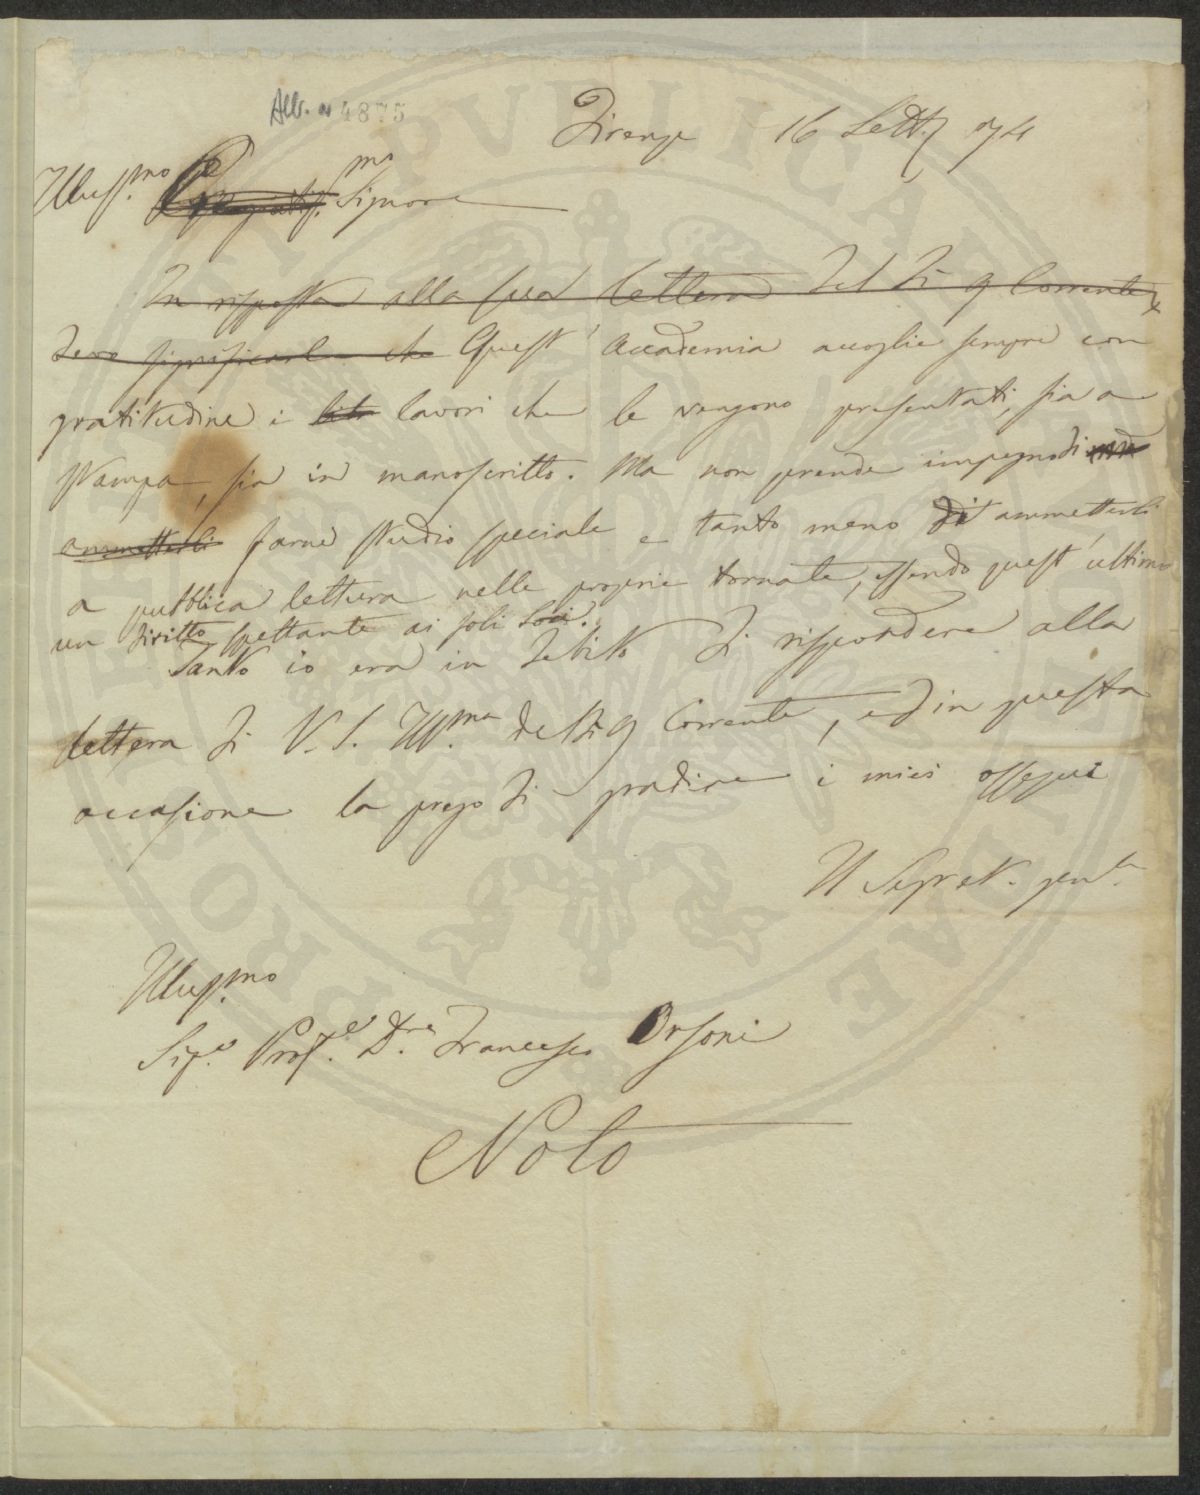 Alb. n 4875
Firenze 16 Sett. 74
Illuss.mo Signore
In risposta alla sua lettera del dì 9 Corrente
devo significarle che Quest' Accademia accoglie sempre con
gratitudine i lavori che le vengono presentati, sia a
stampa, sia in manoscritto. Ma non prende impegno di
ammetterli farne studio speciale e tanto meno di ammetterli
a pubblica lettura nelle proprie tornate, essendo quest' ultimo
un diritto spettante ai soli Soci.
Tanto io era in debito di rispondere alla
lettera di V. S. Ill.ma del dì 9 Corrente, ed in questa
occasione la prego di gradire i miei ossequi
Il Segret. gen.le
Illuss.mo
Sig.e Prof.e D.re Francesco Orsoni
Noto